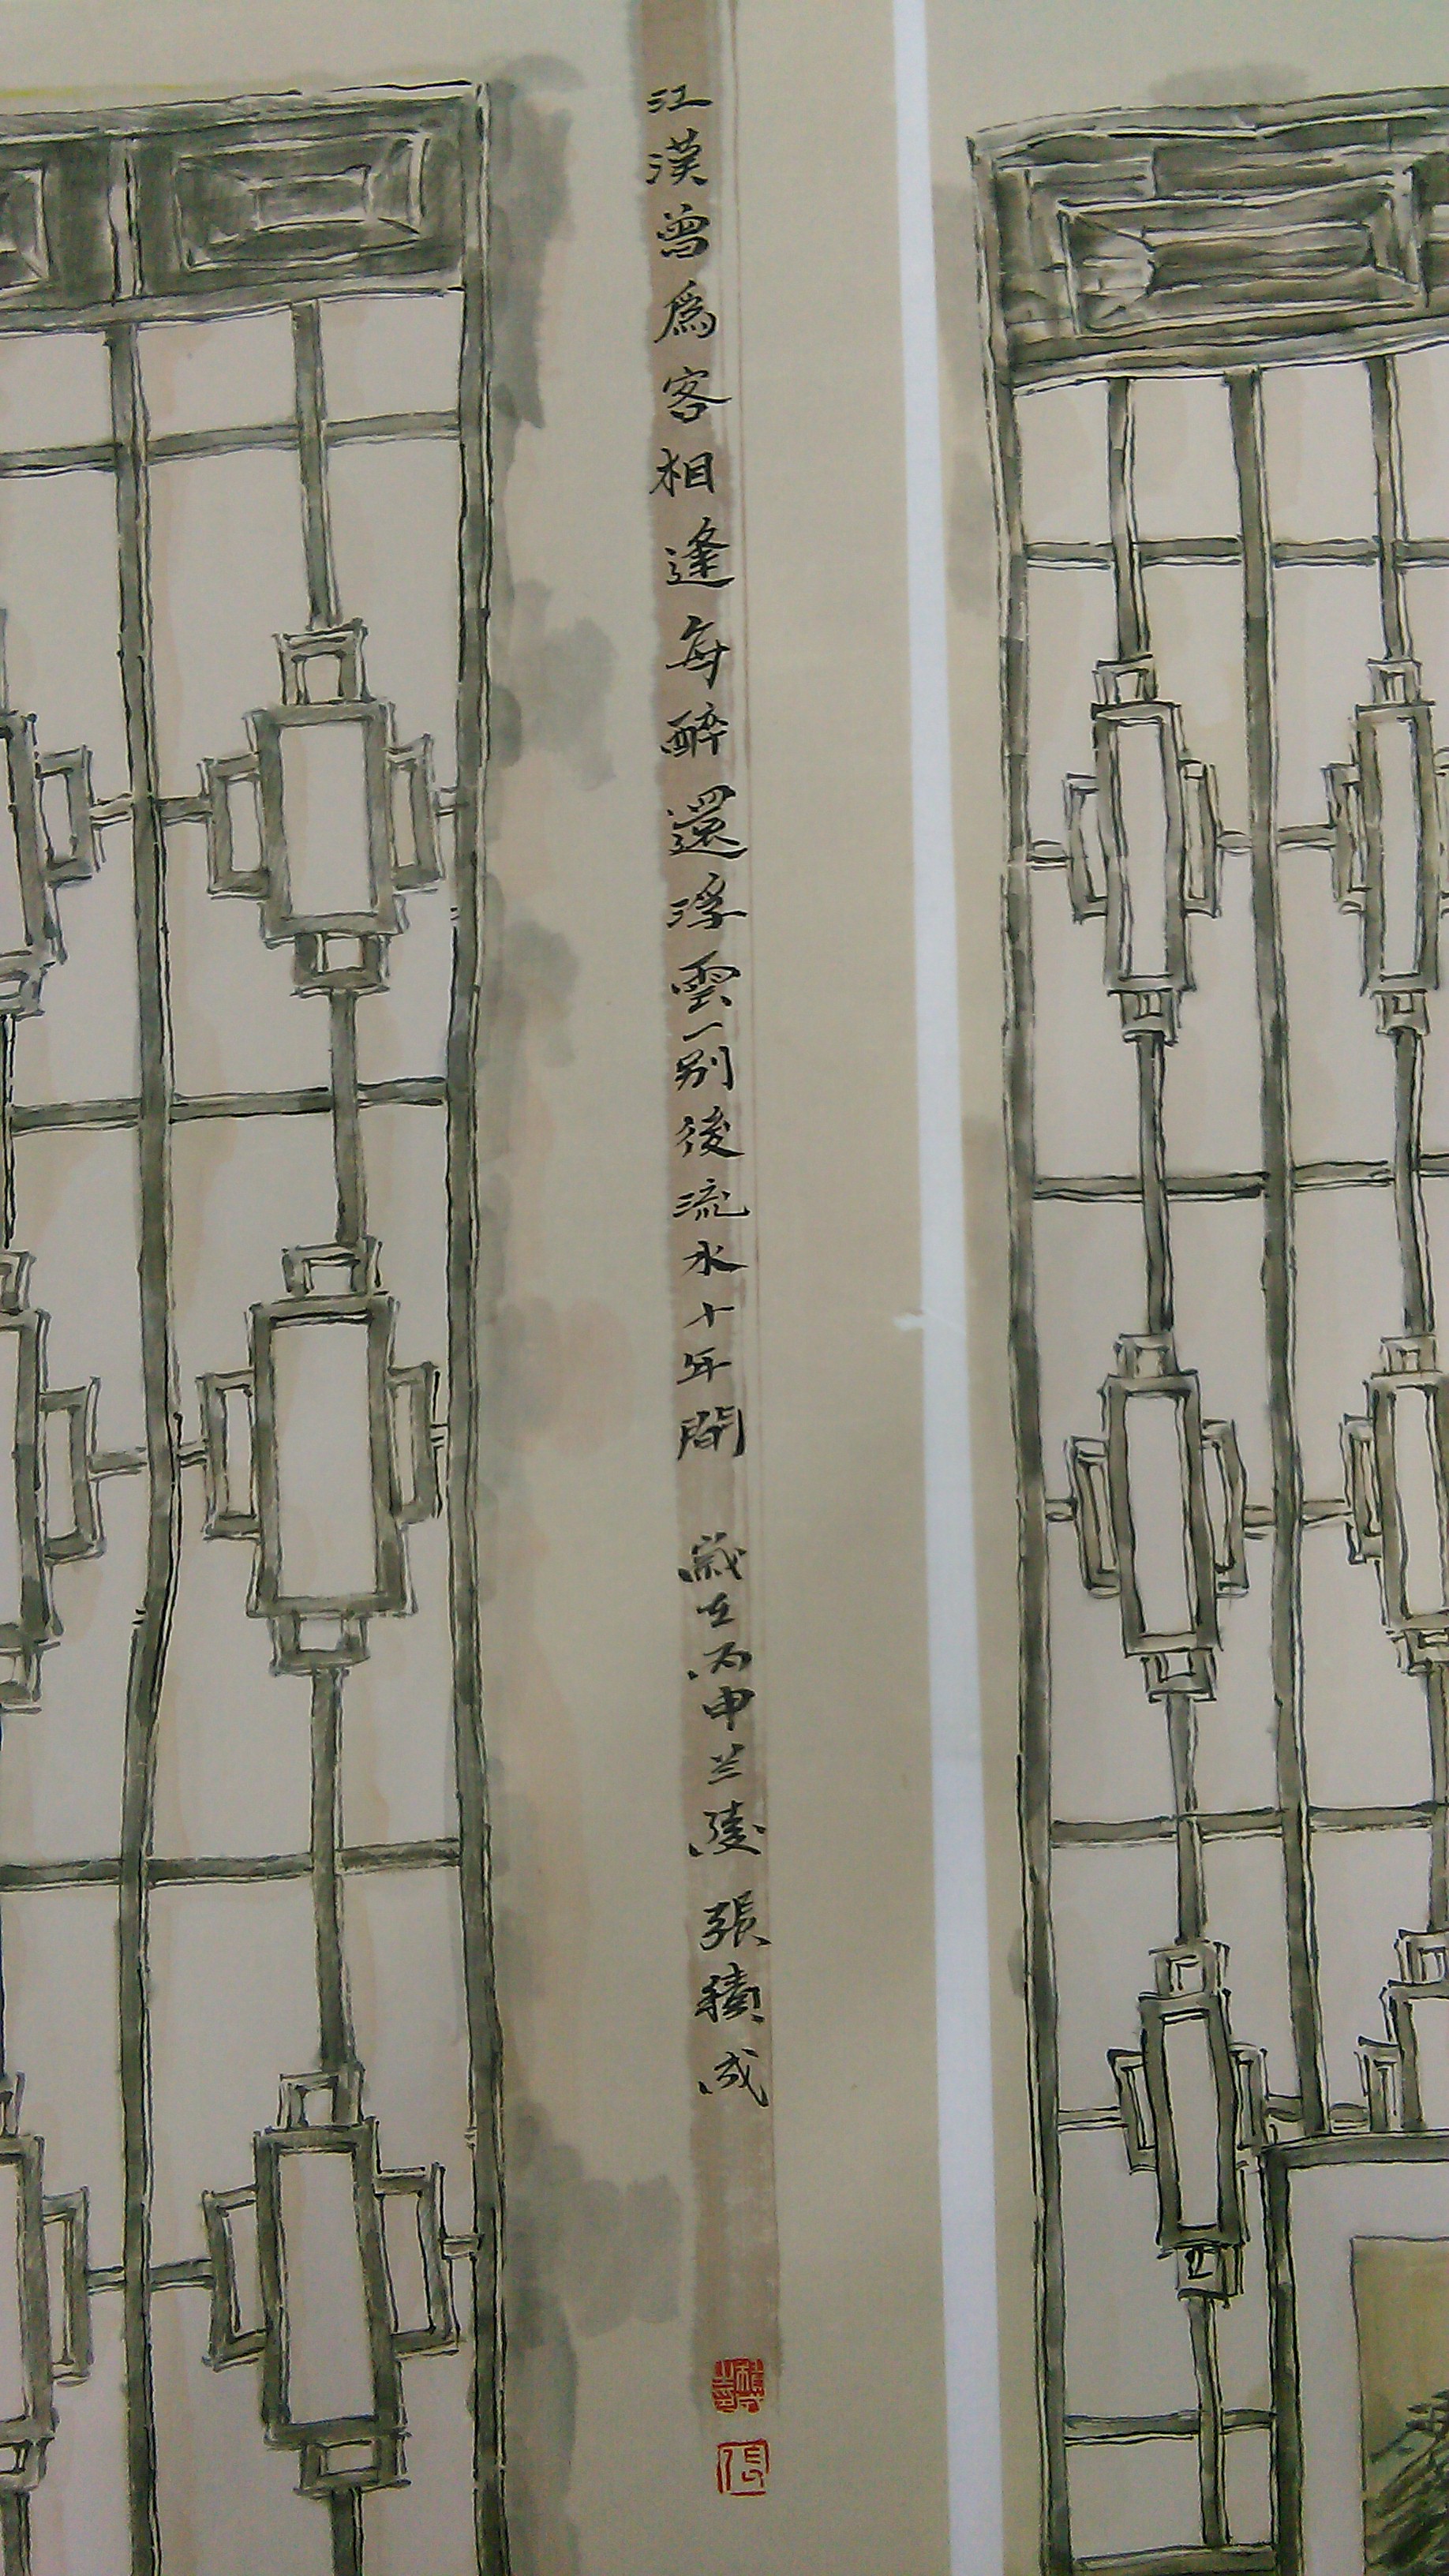 江漢曾爲客相逢每醉還浮雲一別後流水十年間 歲在丙申兰陵張積成